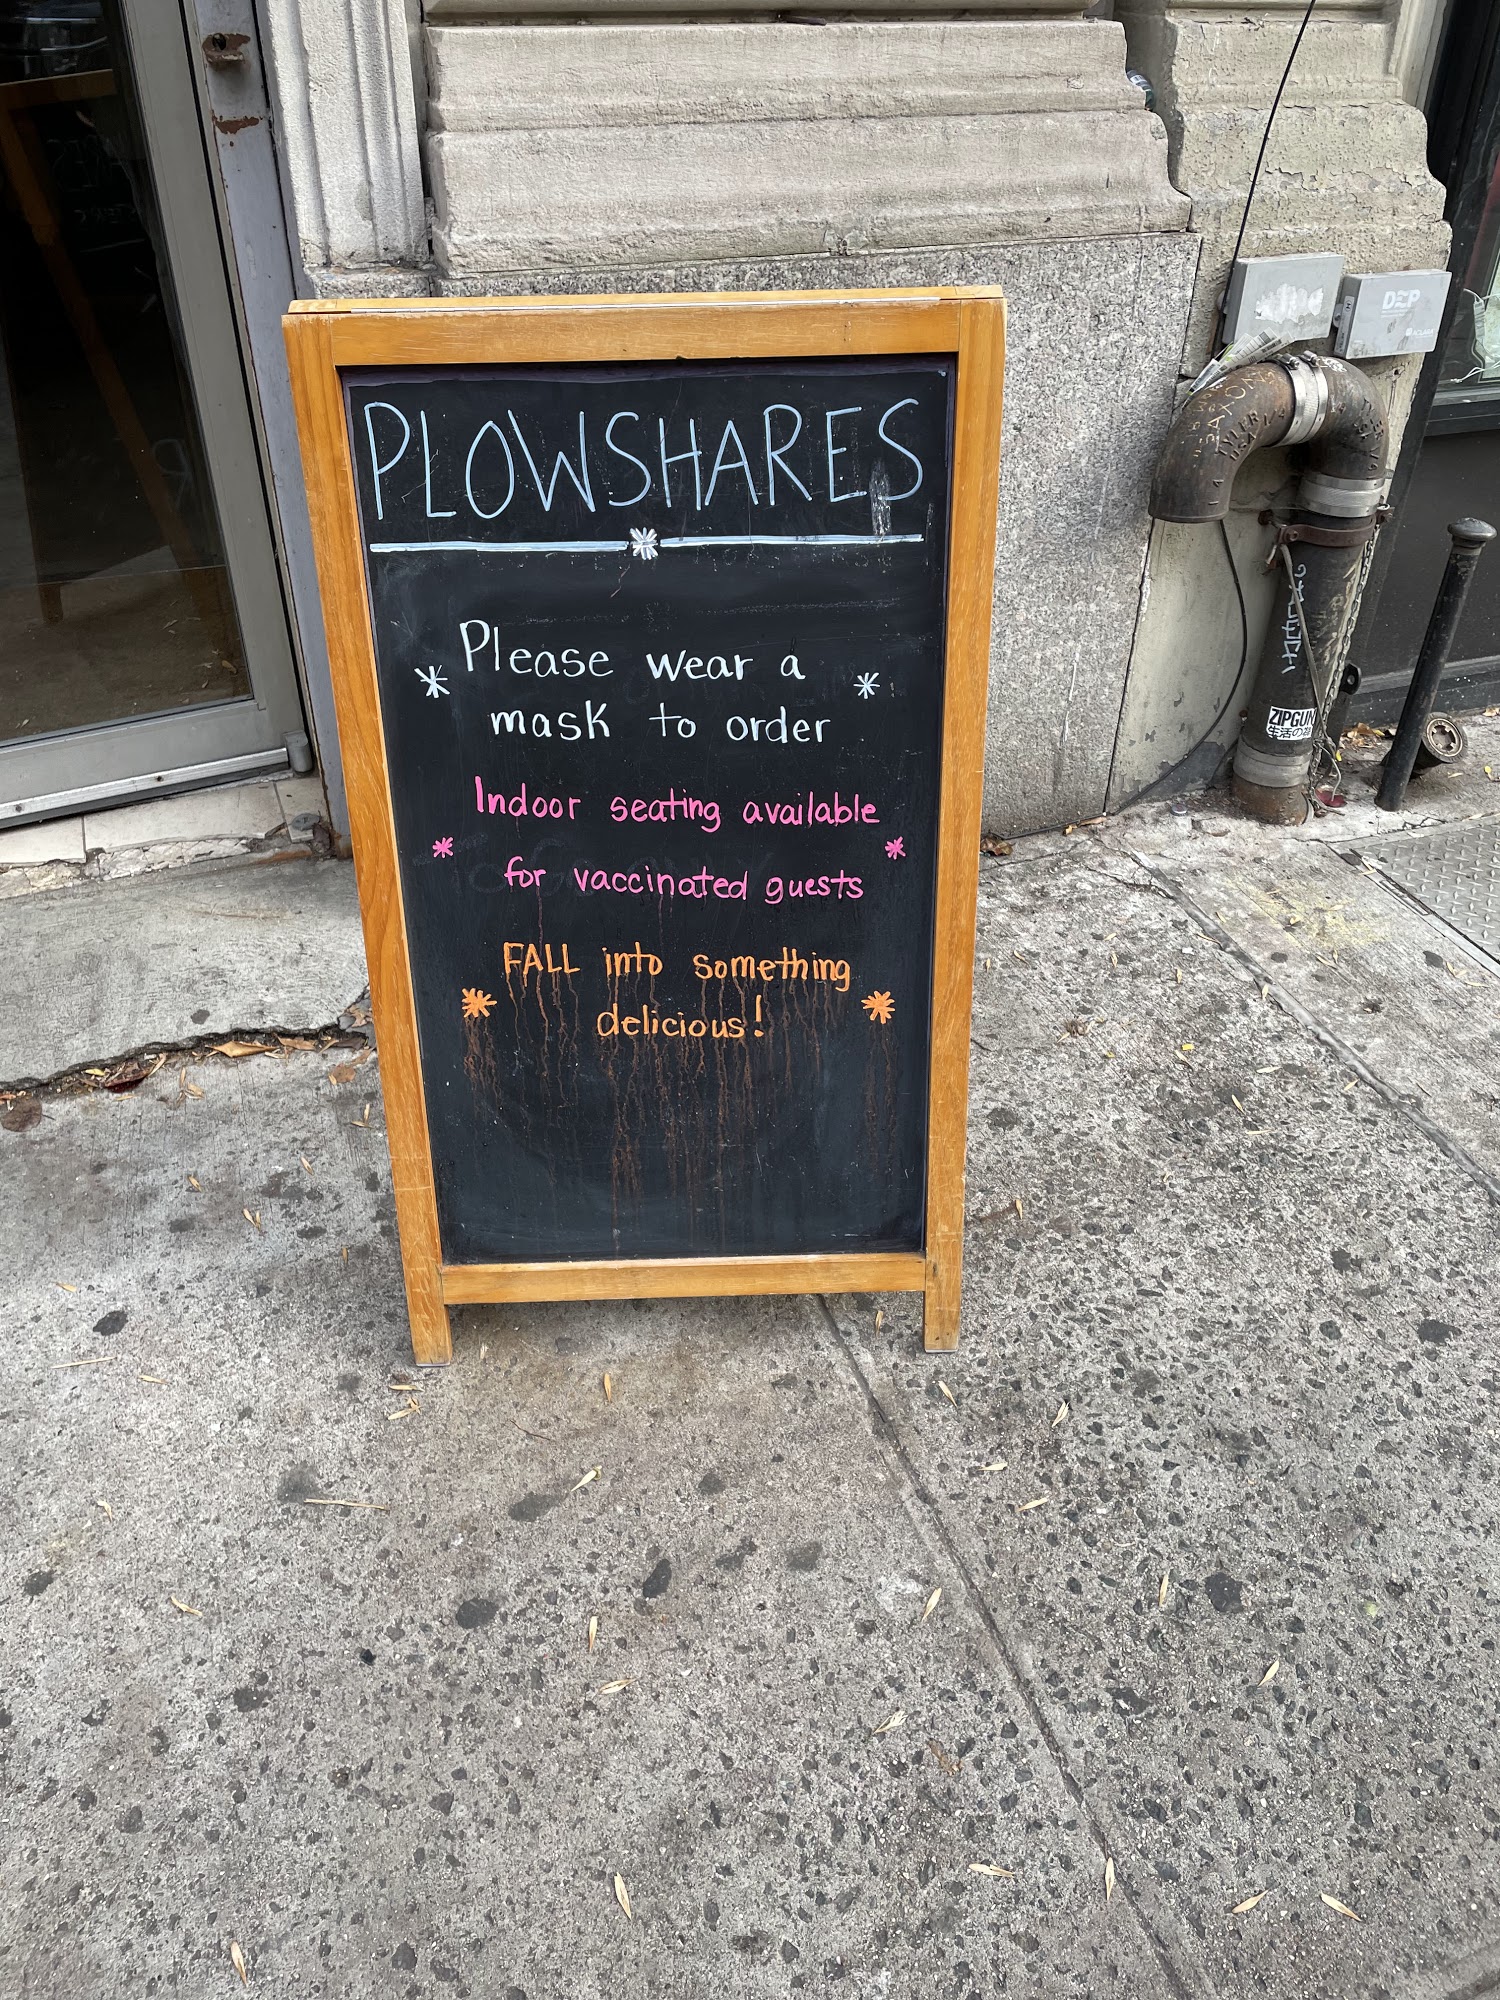 PLOWSHARES
Please wear a
mask to order
Indoor seating available
for vaccinated guests
FALL into something
delicious!
DEP
ACLARA
ZIPGUN